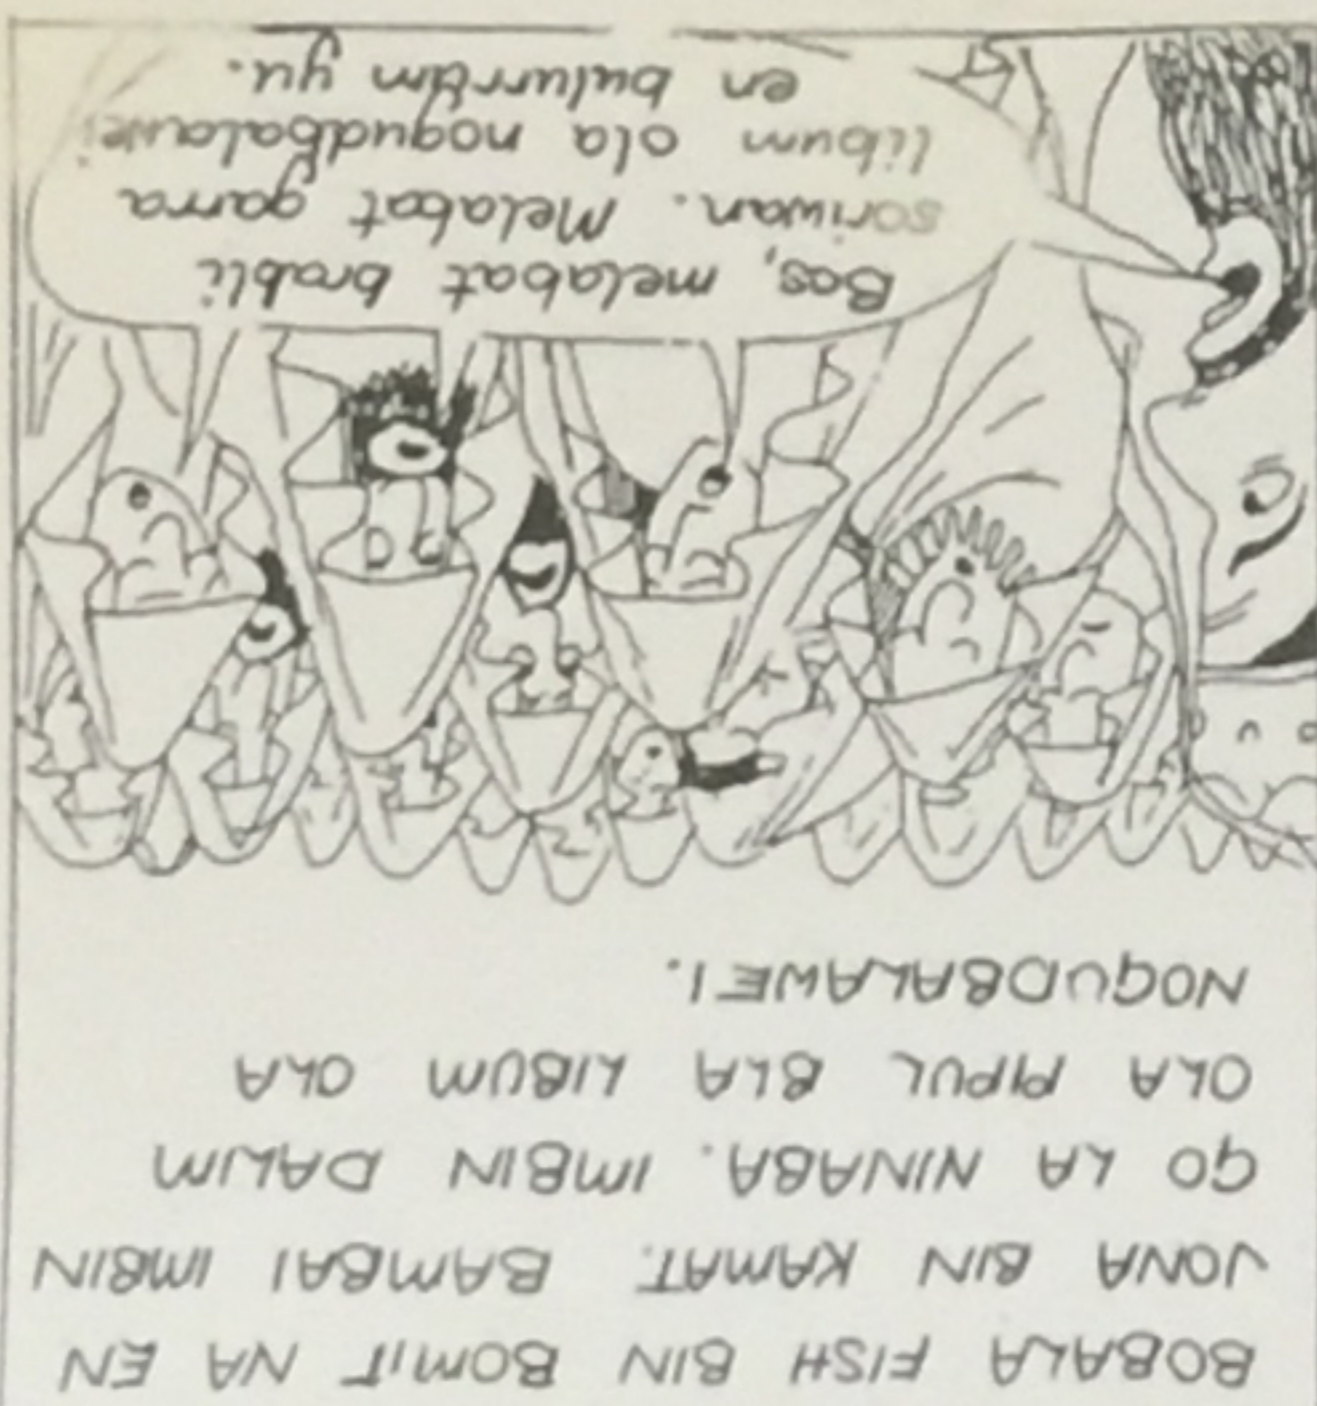 BOBALA FISH BIN BOMIT NA EN
JONA BIN KAMAT. BAMBAI IMBIN
GO LA NINABA. IMBIN DALIM
OLA PIPUL BLA LIBUM OLA
NOGUDBALAWEI.
Bos, melabat brabli
soriwan. Melabat garra
libum ola nogudbalawei
en bulurrum yu.